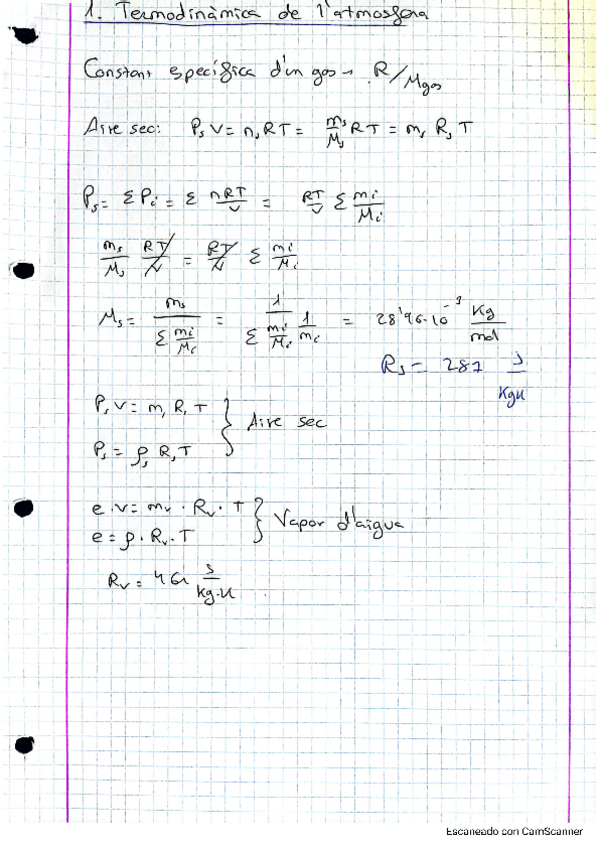 1. Termodinàmica de l'atmosfera
Constant específica d'un gas → R/Mgas
Aire sec: Ps V = ns RT = ms/Ms RT = ms Rs T
Ps = Σ Pi = Σ nRT/V = RT/V Σ mi/Mi
ms/Ms RT/V = RT/V Σ mi/Mi
Ms = ms / Σ mi/Mi = 1 / Σ mi/Mi 1/ms = 28'96·10⁻³ Kg/mol
Rs = 287 J/KgK
Ps V = ms Rs T
Ps = ρs Rs T } Aire sec
e · V = mv · Rv · T
e = ρ · Rv · T } Vapor d'aigua
Rv = 461 J/Kg·K
Escaneado con CamScanner